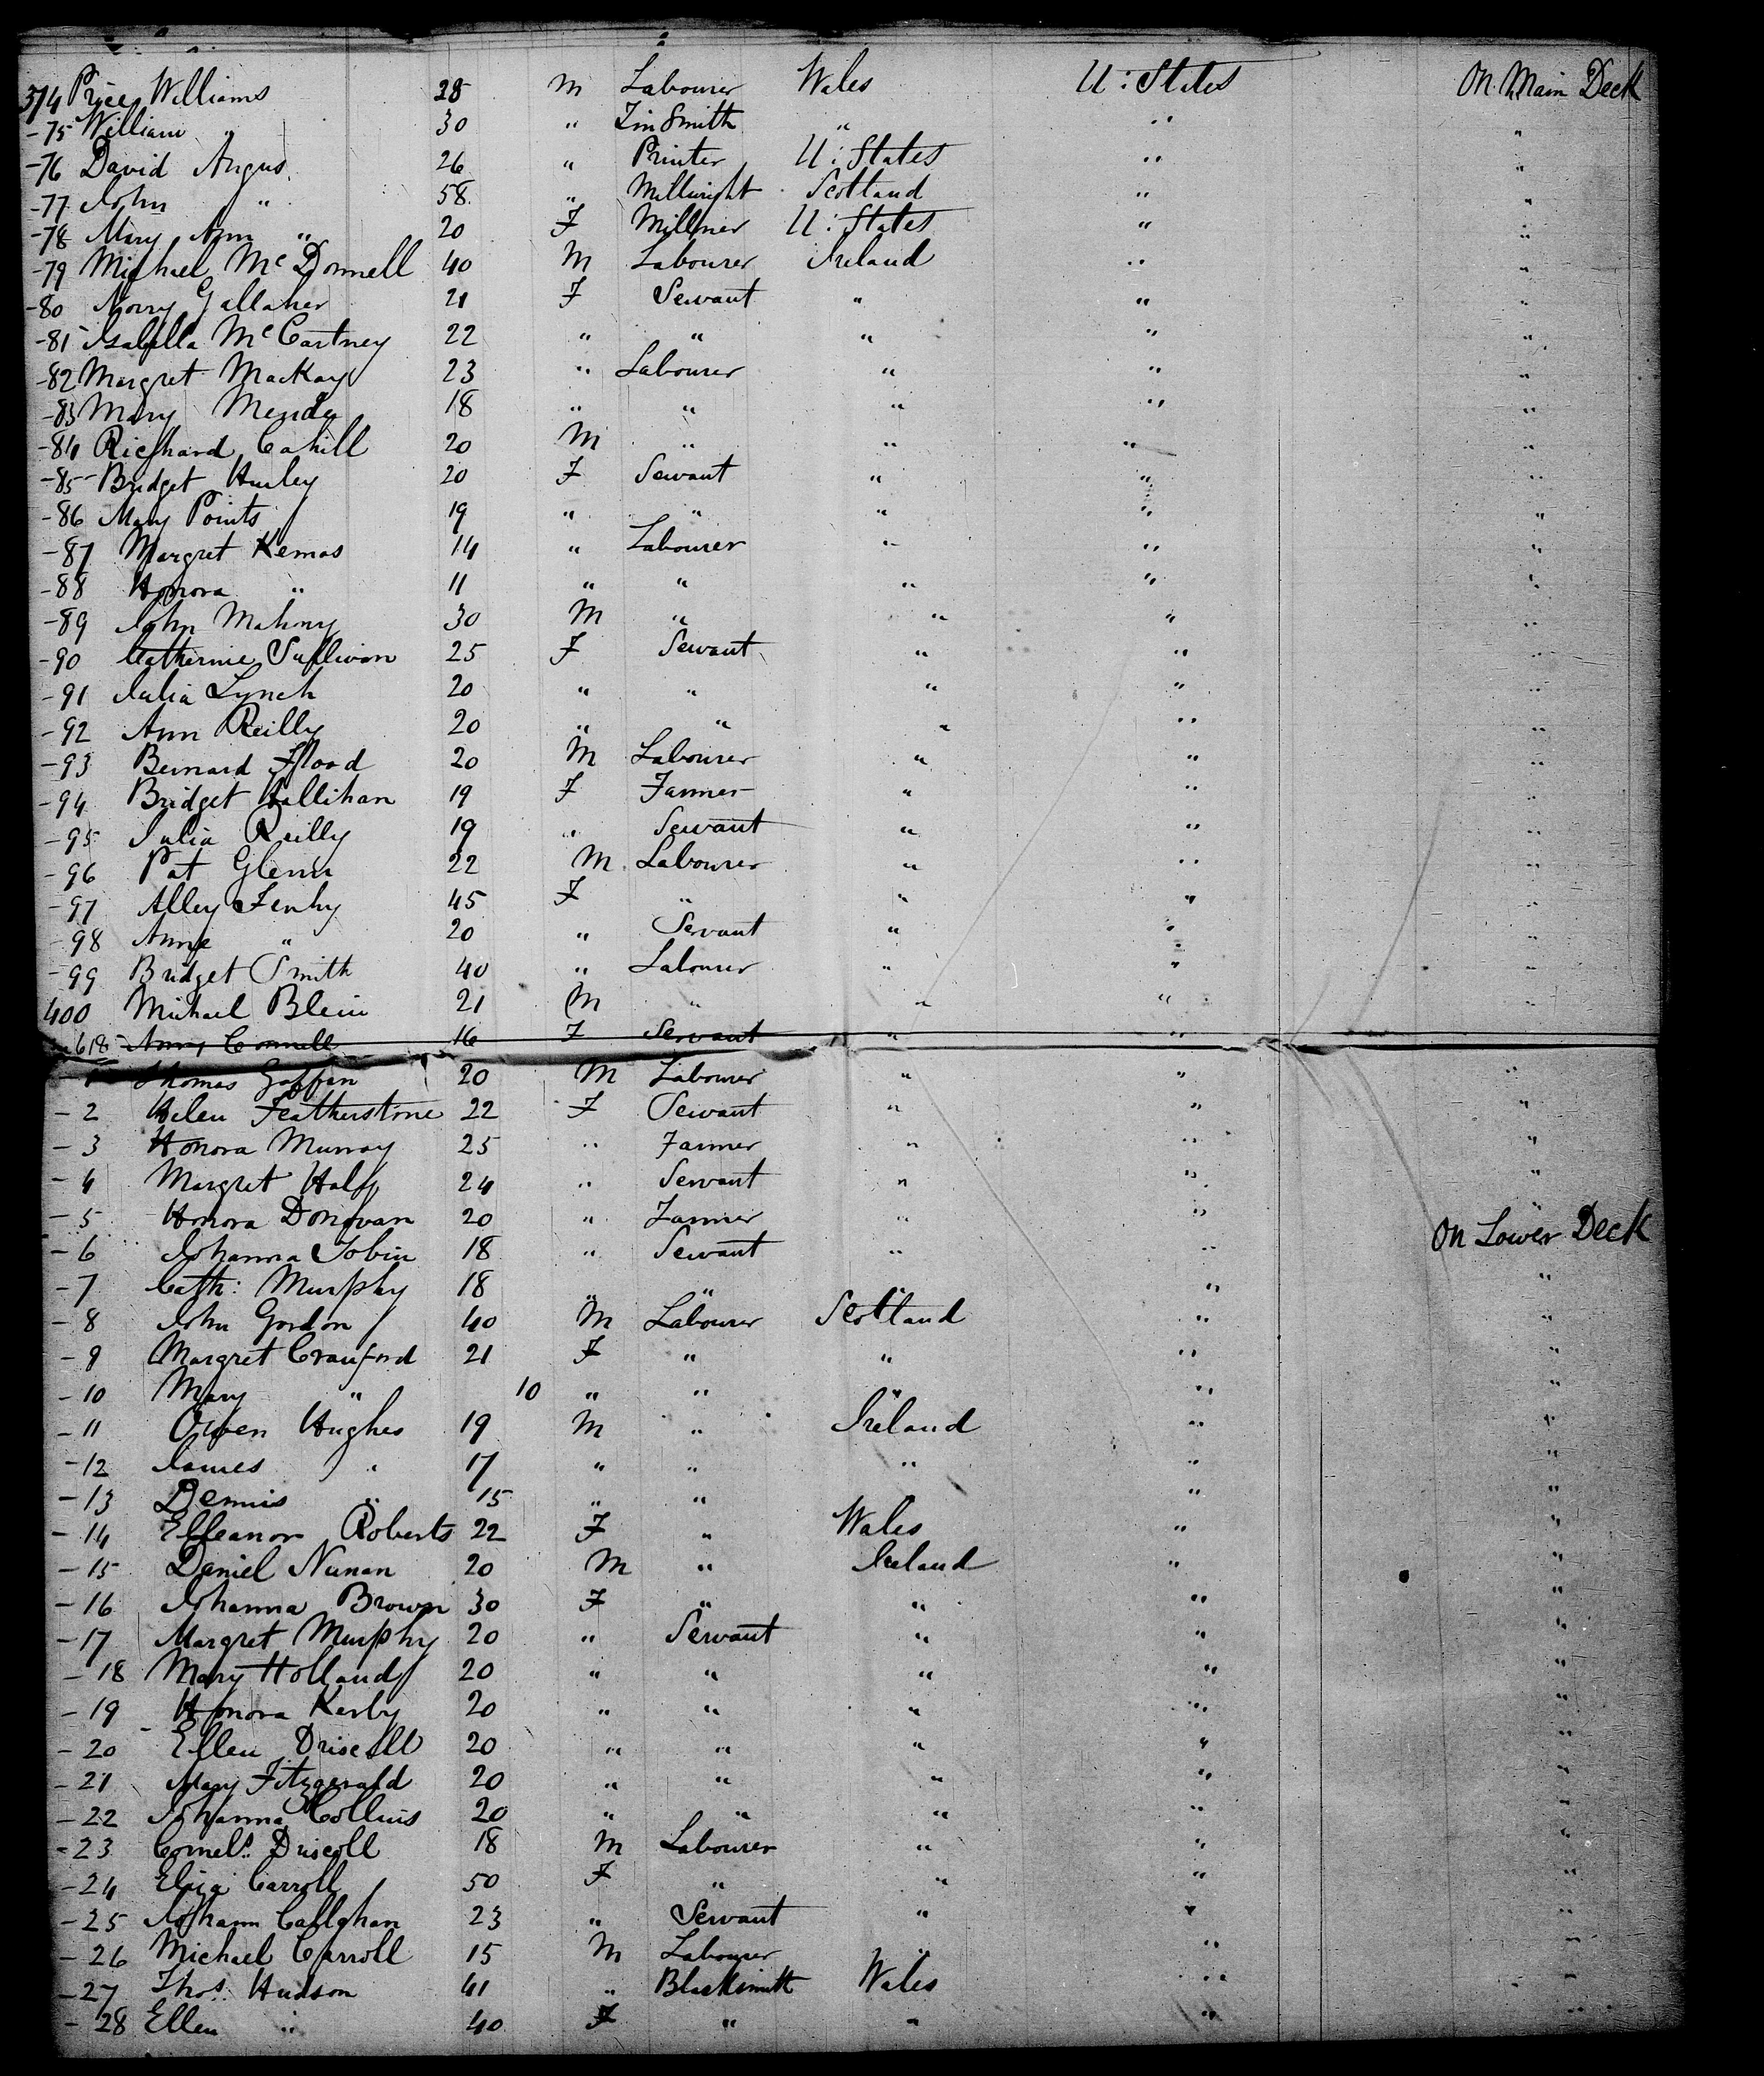 374 Price Williams 28 M Labourer Wales U: States On Main Deck
-75 William " 30 " Tin Smith " " "
-76 David Angus 26 " Printer U: States " "
-77 John " 58 " Millwright Scotland " "
-78 Mary Ann " 20 F Milliner U: States " "
-79 Michael McDonnell 40 M Labourer Ireland " "
-80 Norry Gallaher 21 F Servant " " "
-81 Isabella McCartney 22 " " " " "
-82 Margret MacKay 23 " Labourer " " "
-83 Mary 18 " " " " "
-84 Richard Cahill 20 M " " " "
-85 Bridget Hurley 20 F Servant " " "
-86 Mary Points 19 " " " " "
-87 Margret Kemas 14 " Labourer " " "
-88 Honora " 11 " " " " "
-89 John Mahony 30 M " " " "
-90 Catherine Sullivan 25 F Servant " " "
-91 Julia Lynch 20 " " " " "
-92 Ann Reilly 20 " " " " "
-93 Bernard Flood 20 M Labourer " " "
-94 Bridget Hallihan 19 F Farmer " " "
-95 Julia Reilly 19 " Servant " " "
-96 Pat Glenn 22 M Labourer " " "
-97 Alley 45 F " " " "
-98 Anne " 20 " Servant " " "
-99 Bridget Smith 40 " Labourer " " "
400 Michael Blein 21 M " " " "
618 Connell 16 F Servant " "
Thomas Gaffan 20 M Labourer " " "
-2 Helen Featherstone 22 F Servant " " "
-3 Honora Murray 25 " Farmer " " "
-4 Margret Haly 24 " Servant " " "
-5 Honora Donovan 20 " Farmer " " "
-6 Johanna Tobin 18 " Servant " " On Lower Deck
-7 Cath: Murphy 18 " " " " "
-8 John Gordon 40 M Labourer Scotland " "
-9 Margret Crauford 21 F " " " "
-10 Mary " 10 " " " " "
-11 Owen Hughes 19 M " Ireland " "
-12 James " 17 " " " " "
-13 Dennis " 15 " " " " "
-14 Elleanor Roberts 22 F " Wales " "
-15 Daniel Nunan 20 M " Ireland " "
-16 Johanna Brown 30 F " " " "
-17 Margret Murphy 20 " Servant " " "
-18 Mary Holland 20 " " " " "
-19 Honora Kerby 20 " " " " "
-20 Ellen Driscoll 20 " " " " "
-21 Mary Fitzgerald 20 " " " " "
-22 Johanna Collins 20 " " " " "
-23 Cornels. Driscoll 18 M Labourer " " "
-24 Eliza Carroll 50 F " " " "
-25 Johann Callghan 23 " Servant " " "
-26 Michael Carroll 15 M Labourer " " "
-27 Thos. Hudson 41 " Blacksmith Wales " "
-28 Ellen " 40 F " " " "